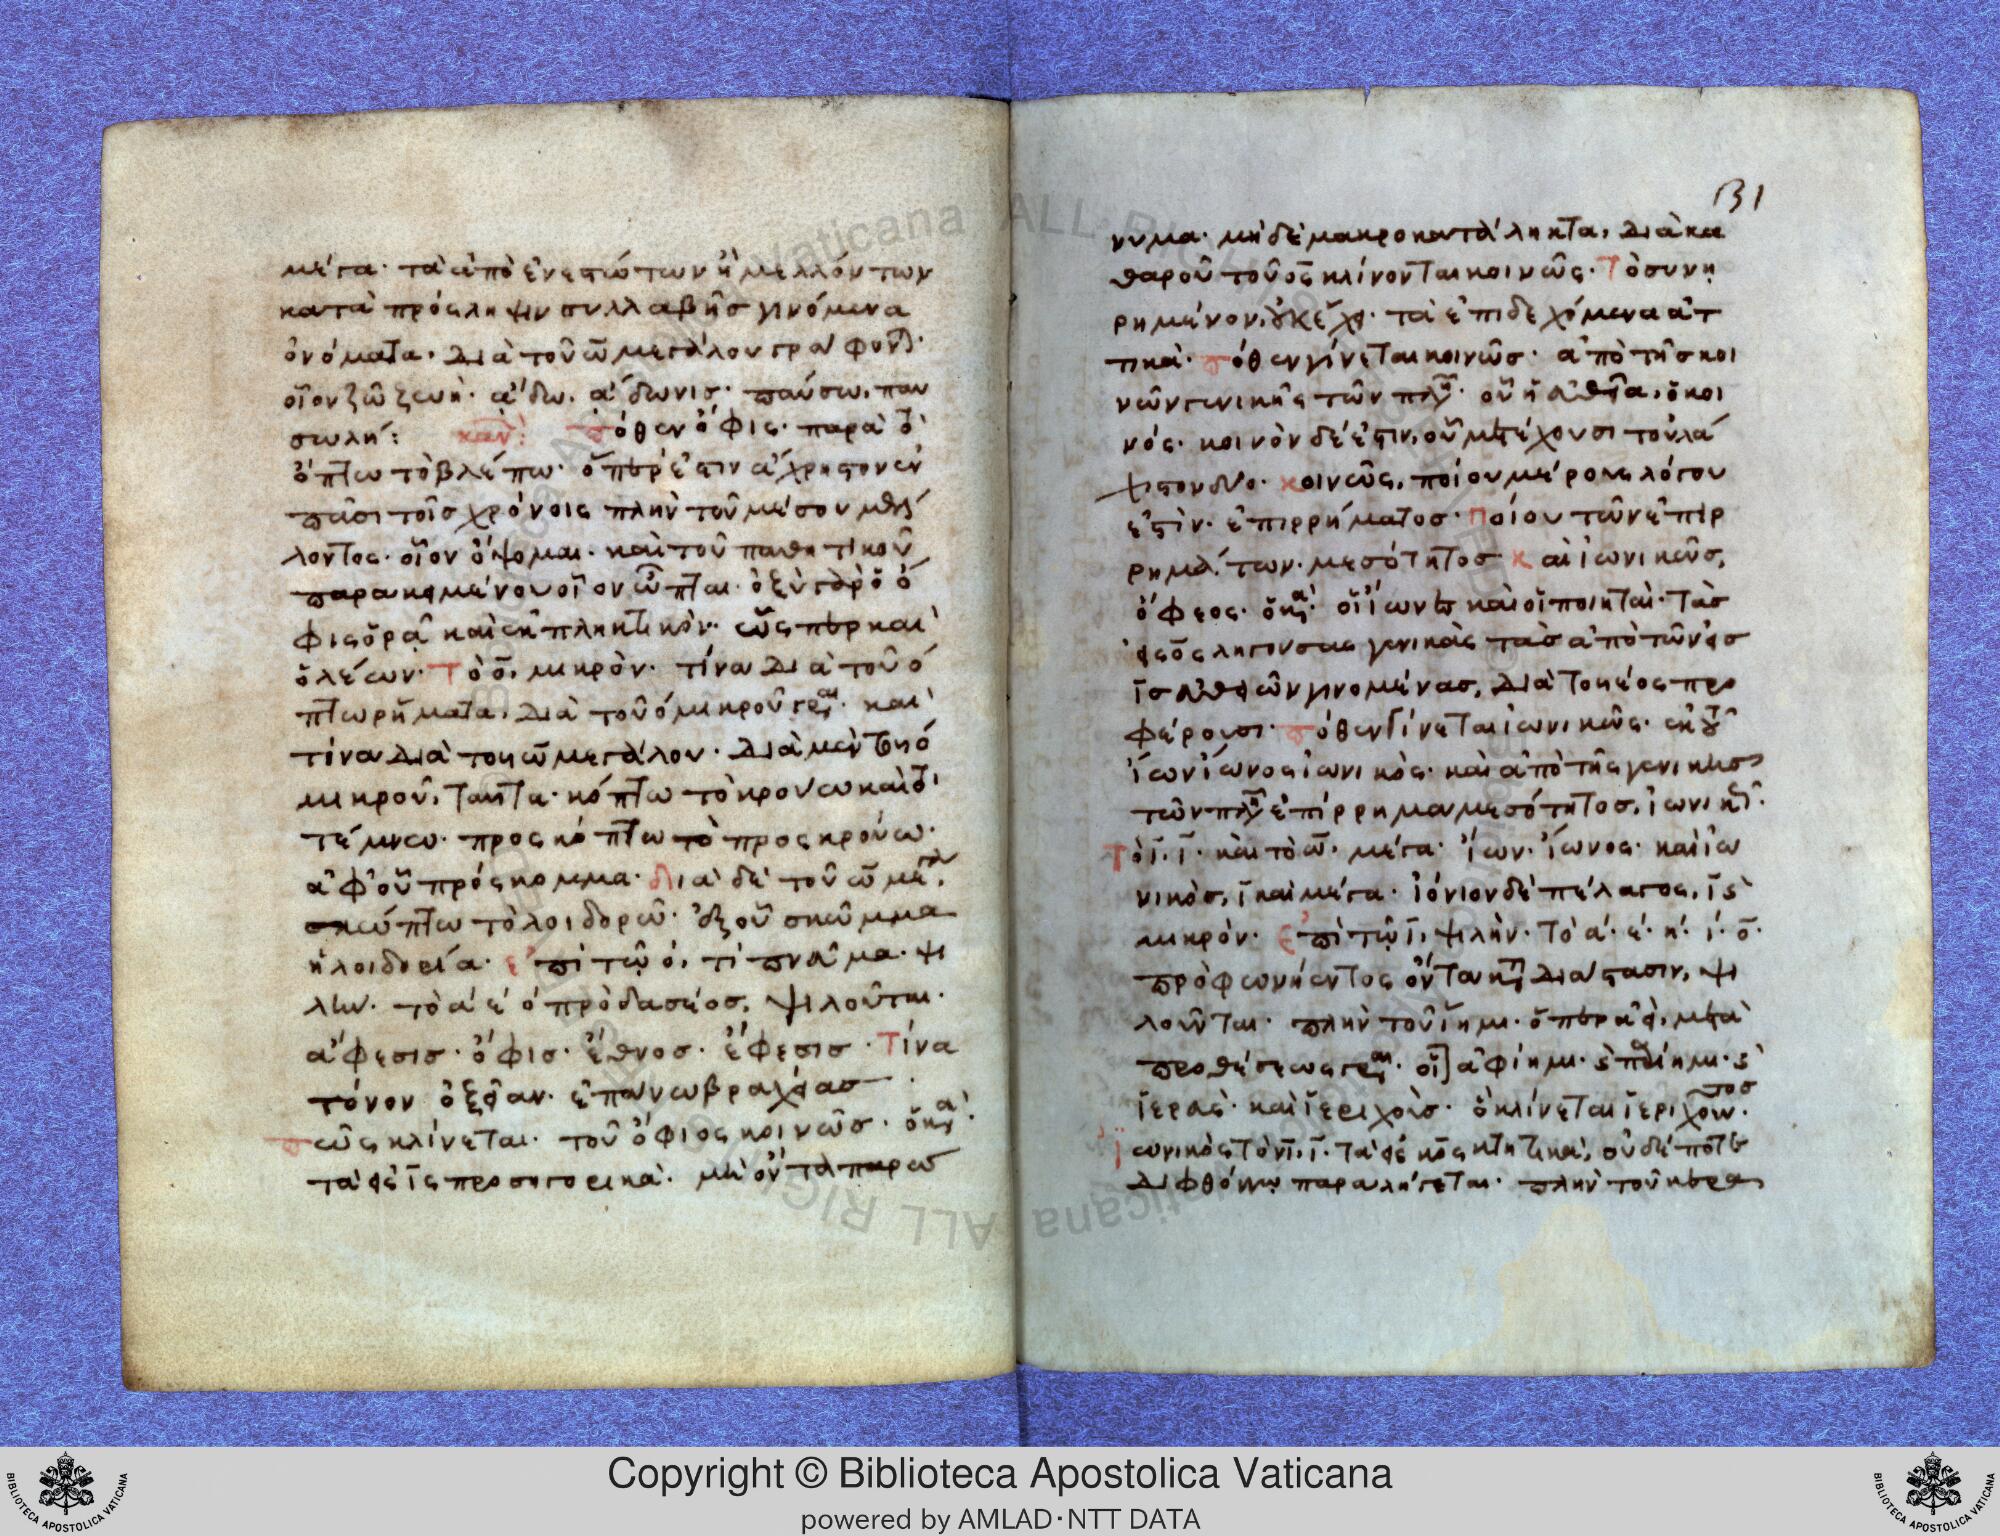 μέγα· τὰ ἀπὸ ἐνεστώτων ἢ μελλόντων
κατὰ πρόσληψιν συλλαβῆς γινόμενα
ὀνόματα. διὰ τοῦ ω̄ μεγάλου γράφονται·
οἷον ζῶ ζωή· ἄδω, ἄδωνις· παύσω, παυ
σωλή: καν: πόθεν ὄφις· παρὰ τὸ
ὄπτω τὸ βλέπω· ὅπερ ἐστὶν ἄχρηστον ἐν
πᾶσι τοῖς χρόνοις πλὴν τοῦ μέσου μέλ
λοντος· οἷον ὄψομαι· καὶ τοῦ παθητικοῦ
παρακειμένου οἷον ὦπται· ὀξὺ γὰρ ὁ ὄ
φις ὁρᾷ καὶ ἐκπληκτικόν· ὥσπερ καὶ
ὁ λέων· Τὸ ο̄, μικρὸν· τίνα διὰ τοῦ ό
πτω ρήματα, διὰ τοῦ ο μικροῦ γράφεται· καὶ
τίνα διὰ τοῦ ω̄ μεγάλου· διὰ μὲν τοῦ ο
μικροῦ, ταῦτα· κόπτω τὸ κρούω καὶ τὸ
τέμνω· προσκόπτω τὸ προσκρούω·
ἀφ' οὗ πρόσκομμα· διὰ δὲ τοῦ ω̄ μεγάλου,
σκώπτω τὸ λοιδορῶ· ἐξ οὗ σκῶμμα
ἡ λοιδορία· ἐπὶ τῷ ό, τί πνεῦμα· ψι
λήν· τὸ ά έ ό πρὸ δασέος, ψιλοῦται·
ἄφεσις· ὄφις· ἔθνος· ἔφεσις· Τίνα
τόνον ὀξεῖαν· ἐπάνω βραχείας
πῶς κλίνεται· τοῦ ὄφιος κοινῶς·
τὰ εἰς ῑς προσηγορικὰ· μὴ ὄντα παρώ
131
νυμα· μὴ δὲ μακροκατάληκτα, διὰ κα
θαροῦ τοῦ ο̄ς κλίνονται κοινῶς· Τὸ συνῃ
ρημένον, οὐκ ἔχει· τὰ ἐπιδεχόμενα ἀτ
τικά· πόθεν γίνεται κοινῶς· ἀπὸ τῆς κοι
νῶν γενικῆς τῶν πληθυντικῶν· οὗ ἡ εὐθεῖα, ὁ κοι
νός· κοινὸν δέ ἐστιν, οὗ μετέχουσι τοὐλά
χιστον δύο· κοινῶς, ποίου μέρους λόγου
ἐστὶν· ἐπιρρήματος· Ποίου τῶν ἐπιρ
ρημάτων· μεσότητος καὶ ἰωνικῶς,
ὄφεος· οἱ ἴωνες καὶ οἱ ποιηταὶ· τὰς
εἰς ο̄ς ληγούσας γενικὰς τὰς ἀπὸ τῶν εἰς
ῑς εὐθειῶν γινομένας, διὰ τοῦ εος προ
φέρουσι· πόθεν γίνεται ἰωνικῶς· ἐκ τοῦ
ἴων ἴωνος ἰωνικός· καὶ ἀπὸ τῆς γενικῆς
τῶν πληθυντικῶν ἐπίρρημα μεσότητος, ἰωνικῶς·
Τὸ ῑ, ῑ· καὶ τὸ ω̄· μέγα· ἴων· ἴωνος· καὶ ἰω
νικὸς, ῑ καὶ μέγα· ἰόνιον δὲ πέλαγος, ῑ καὶ
μικρὸν· ἐπὶ τῷ ῑ, ψιλὴν· τὸ ά· έ· ή· ί· ο̄·
πρὸ φωνήεντος ὄντα κατὰ διάστασιν, ψι
λοῦνται· πλὴν τοῦ ἵημι· ὅπερ ἀεὶ, μετὰ
προθέσεως γράφεται· οἷον ἀφίημι· καὶ ἐπαφίημι· καὶ
ἱερὰς· καὶ ἱεριχοὺς· ὃ κλίνεται ἱεριχοῦντος·
ἰωνικὸς τὸ νῑ, ῑ· τὰ εἰς κος κτητικὰ, οὐδέποτε
διφθόγγῳ παραλήγεται· πλὴν τοῦ κεραμ
Copyright © Biblioteca Apostolica Vaticana
powered by AMLAD·NTT DATA
BIBLIOTECA APOSTOLICA VATICANA
BIBLIOTECA APOSTOLICA VATICANA